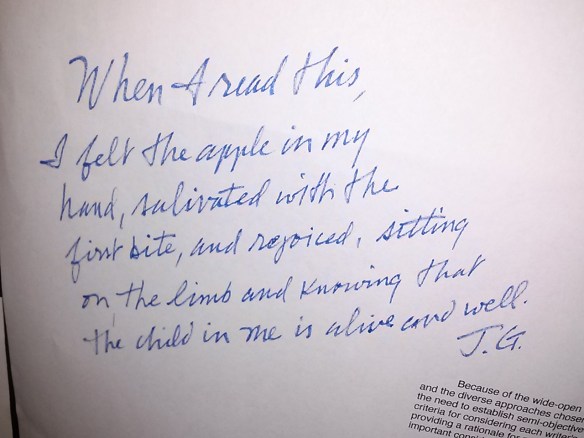 When I read this,
I felt the apple in my
hand, salivated with the
first bite, and rejoiced, sitting
on the limb and knowing that
the child in me is alive and well.
J.G.
Because of the wide-open
and the diverse approaches
the need to establish semi-objective
criteria for considering each
providing a rationale for
important